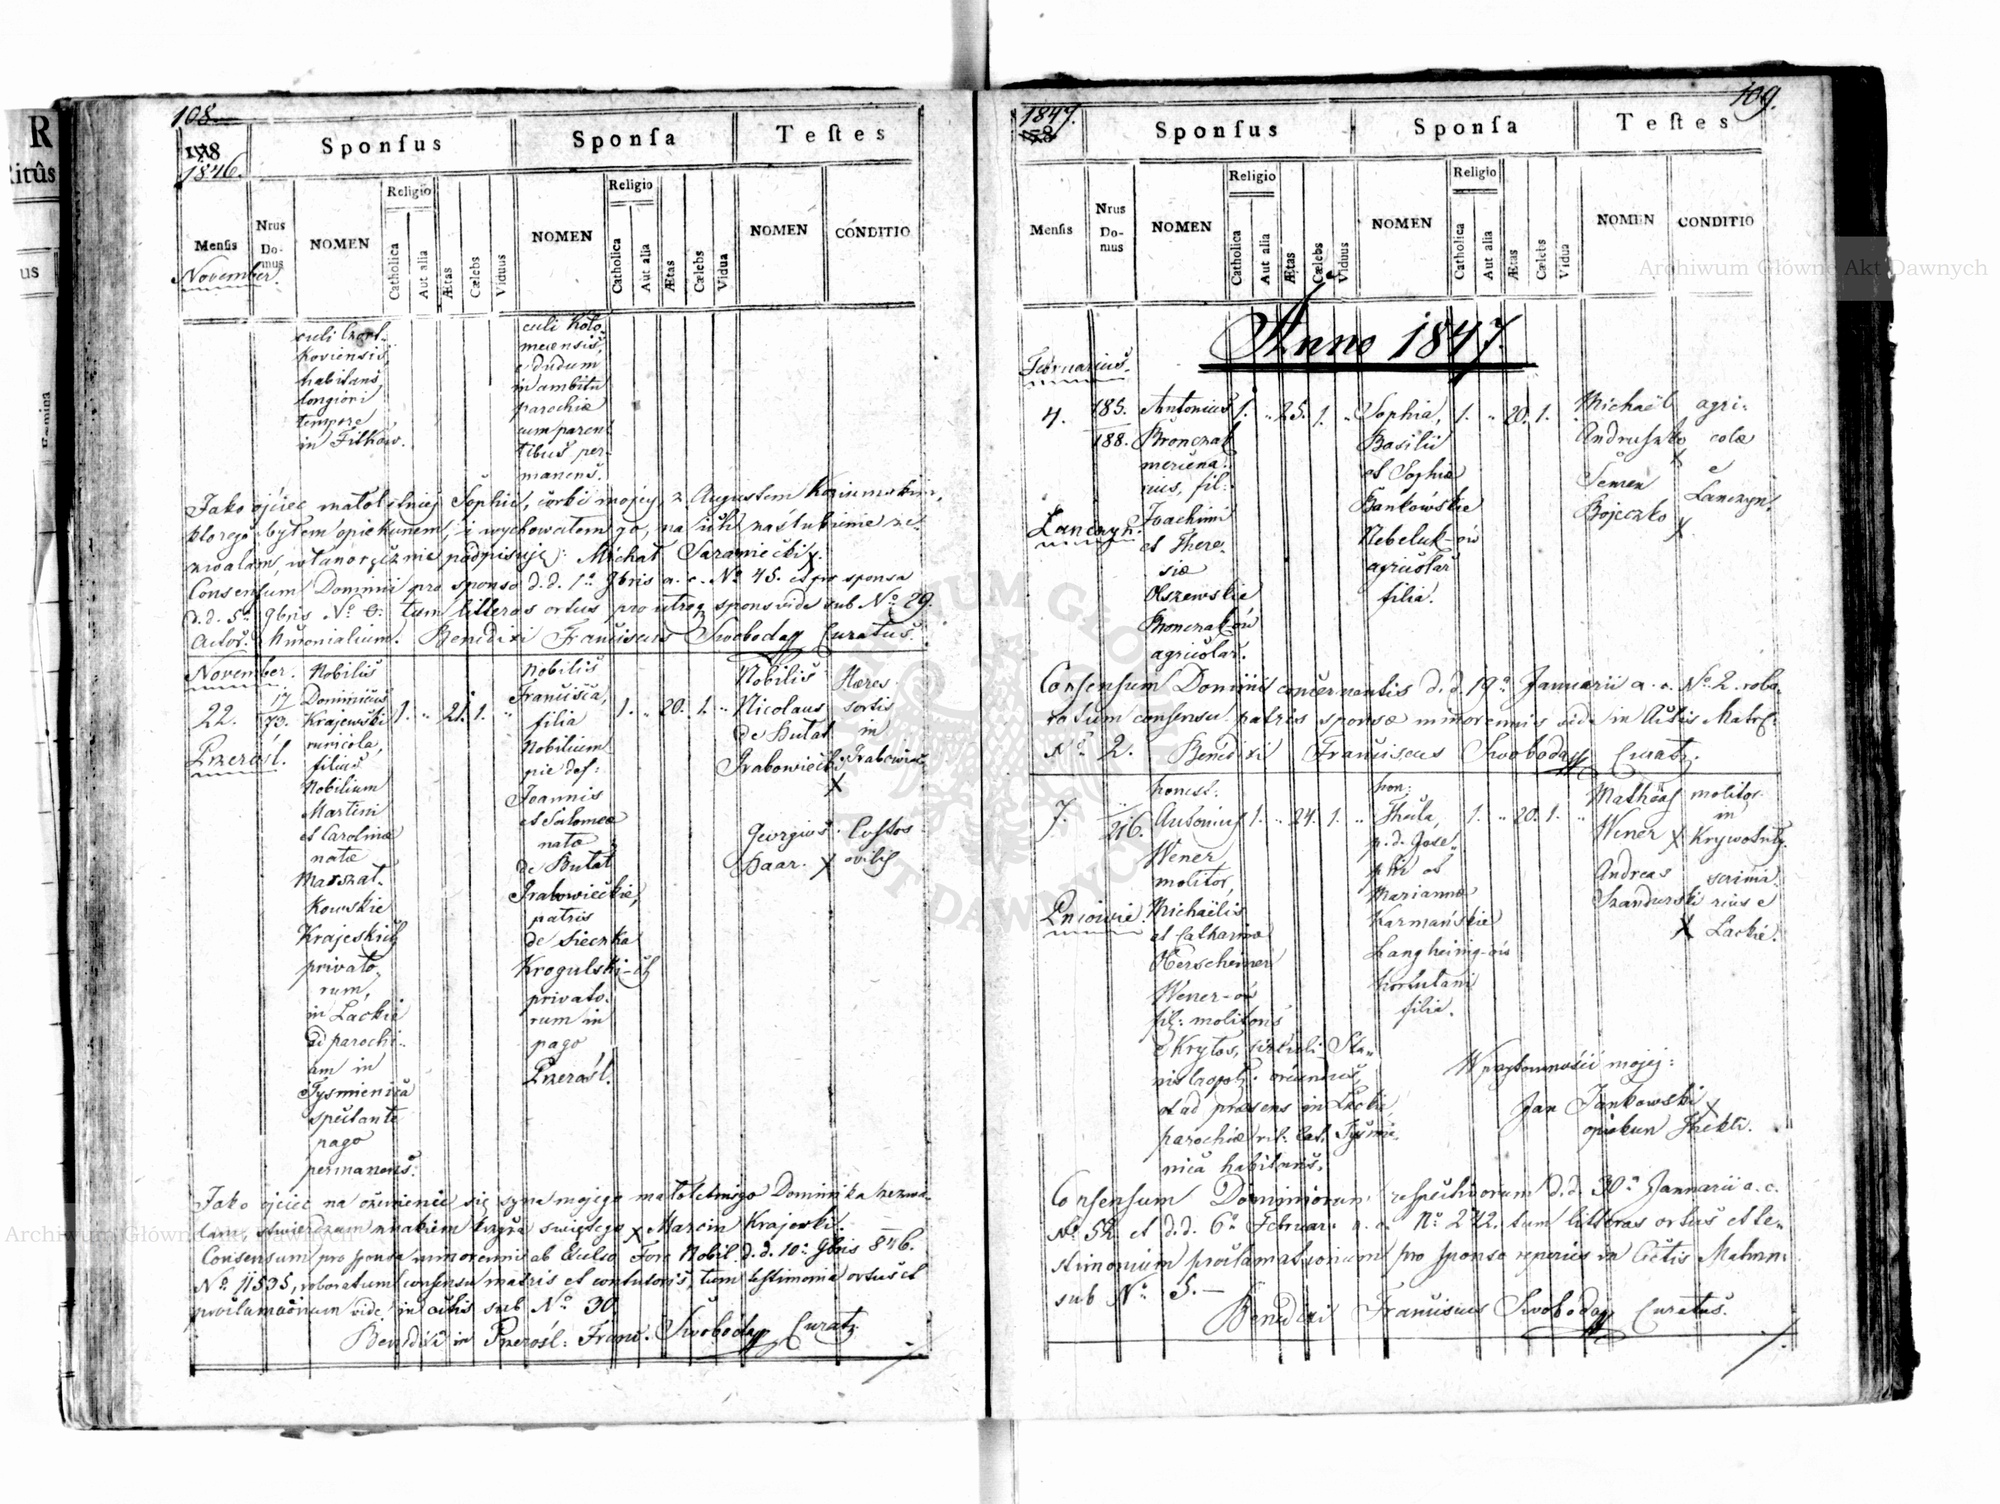 108.
178
1846.
Sponſus
Sponſa
Teſtes
Menſis
Nrus Domus
NOMEN
Religio
Catholica
Aut alia
Ætas
Cælebs
Viduus
NOMEN
Religio
Catholica
Aut alia
Ætas
Cælebs
Vidua
NOMEN
CONDITIO
November.
habitans,
longiori
tempore,
in Fitków.
culi Kolo-
meiensis,
e dudum
in ambitu
parochiæ
cum paren
tibus per-
manens.
Jako ojciec małoletniej Sophii, córki mojej, z Augustem
którego byłem opiekunem, i wychowałem go, na ich zaślubienie ze-
zwalam, własnoręcznie podpisuję: Michał Saraniecki
Consensum Dominii pro sponso d.d. 1ª 9bris a. c. Nº 45. et pro sponsa
d.d. 5ª 9bris Nº 6: tum litteras ortus pro utroq spons vide sub Nº 29.
Actor: Benedixi Franciscus Swoboda Curatus.
November.
22.
Przerośl.
17
73.
Nobilis
Dominicus
Krajewski
ruricola,
filius
Nobilium
Martini
et Carolinæ
natæ
Marszał-
kowskie
Krajeskich
privato-
rum,
in Łackie
ad parochi-
am in
Tysmienica
spectante
pago
permanens.
1. „ 21. 1. „
Nobilis
Francisca,
filia
Nobilium
pie def:
Joannis
et Salomeæ
natæ
de Butat
Grabowieckie,
patris
de Sieczka
Krogulski-ch
privato-
rum in
pago
Przerośl.
1. „ 20. 1. „
Nobilis
Nicolaus
de Butat
Grabowiecki
x
Hæres
sortis
in
Grabowiec
Georgius
Haar. x
Custos
ovilis
Jako ojciec na ożenienie się syna mojego małoletniego Dominika zezwa-
lam, stwierdzam znakiem krzyża świętego x Marcin Krajewski.
Consensum pro sponsa minorenni ab Excelso Foro Nobil. d.d. 10ª 9bris 846.
Nº 11535, roboratum consensu matris et contutoris, tum testimonia ortus et
proclamationum vide in actis sub Nº 30
Benedixi in Przerośl: Franc. Swoboda Curatq
109.
1847.
178
Sponſus
Sponſa
Teſtes
Menſis
Nrus Domus
NOMEN
Religio
Catholica
Aut alia
Ætas
Cælebs
Viduus
NOMEN
Religio
Catholica
Aut alia
Ætas
Cælebs
Vidua
NOMEN
CONDITIO
Anno 1847.
Februarius.
4.
Łanczyn.
185.
188.
Antonius
Bronczak
mercena-
rius, fil:
Joachimi
et There-
siæ
Olszewskie
Bronczak-ów
agricolar.
1. „ 25. 1. „
Sophia,
Basilii
et Sophiæ
Bankowskie
Nebeluk-ów
agricolar
filia.
1. „ 20. 1. „
Michaël
Andruszko
x
Semen
Bojeczko
x
agri-
colæ
e
Łanczyn.
Consensum Dominii concernentis d.d. 19ª Januarii a. c. Nº 2. robo-
ratum consensu patris sponsæ minorennis vide in Actis Matr.
Nº 2. Benedixi Franciscus Swoboda Curatq.
7.
Pniowie.
216.
honest:
Antonius
Wener
molitor,
Michaëlis
et Catharinæ
Oberscheiner
Wener-ów
fil: molitoris
e Krytos, circuli Sta-
nislaopol: oriundus,
et ad præsens in Łackie,
parochiæ rit. lat. Tyśmie-
nica habitans.
1. „ 24. 1. „
hon:
Thecla,
p. d. Jose-
phi et
Mariannæ
Karmańskie
Langheinig-ów
hortulani
filia.
1. „ 20. 1. „
Mathæus
Wener x
Andreas
Szandurski
x
molitor
in
Krywotuły.
scrinia-
rius e
Łackie.
W przytomności mojej:
Jan Jankowski x
opiekun Thekli.
Consensum Dominiorum respectivorum d.d. 30ª Januarii a. c.
Nº 52 et d.d. 6ª Februar: a. c. Nº 242. tum litteras ortus et te-
stimonium proclamationum pro sponso reperies in Actis Matrim:
sub Nº 5.-
Benedixi Franciscus Swoboda Curatus.
Archiwum Główne Akt Dawnych
Archiwum Główne Akt Dawnych